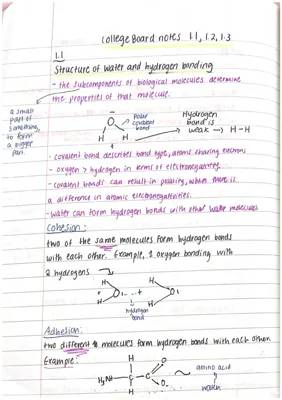 College Board notes 1.1, 1.2, 1.3
1.1
Structure of water and hydrogen bonding
- the subcomponents of biological molecules determine
the properties of that molecule.
a small
part of
something,
to form
a bigger
part.
Polar
covalent
bond
O
H
H
Hydrogen
bond is
weak → H-H
- covalent bond describes bond type, atoms sharing electrons
- oxygen > hydrogen in terms of electronegativity.
- covalent bonds can result in polarity, when there is
a difference in atomic electronegativities.
- water can form hydrogen bonds with other water molecules
Cohesion:
two of the same molecules form hydrogen bonds
with each other. Example, 1 oxygen bonding with
2 hydrogens
H
H
O
H
H
O
hydrogen
bond
Adhesion:
two different molecules form hydrogen bonds with each other.
Example:
H
O
H₂N
C
C
H
O
amino acid
water